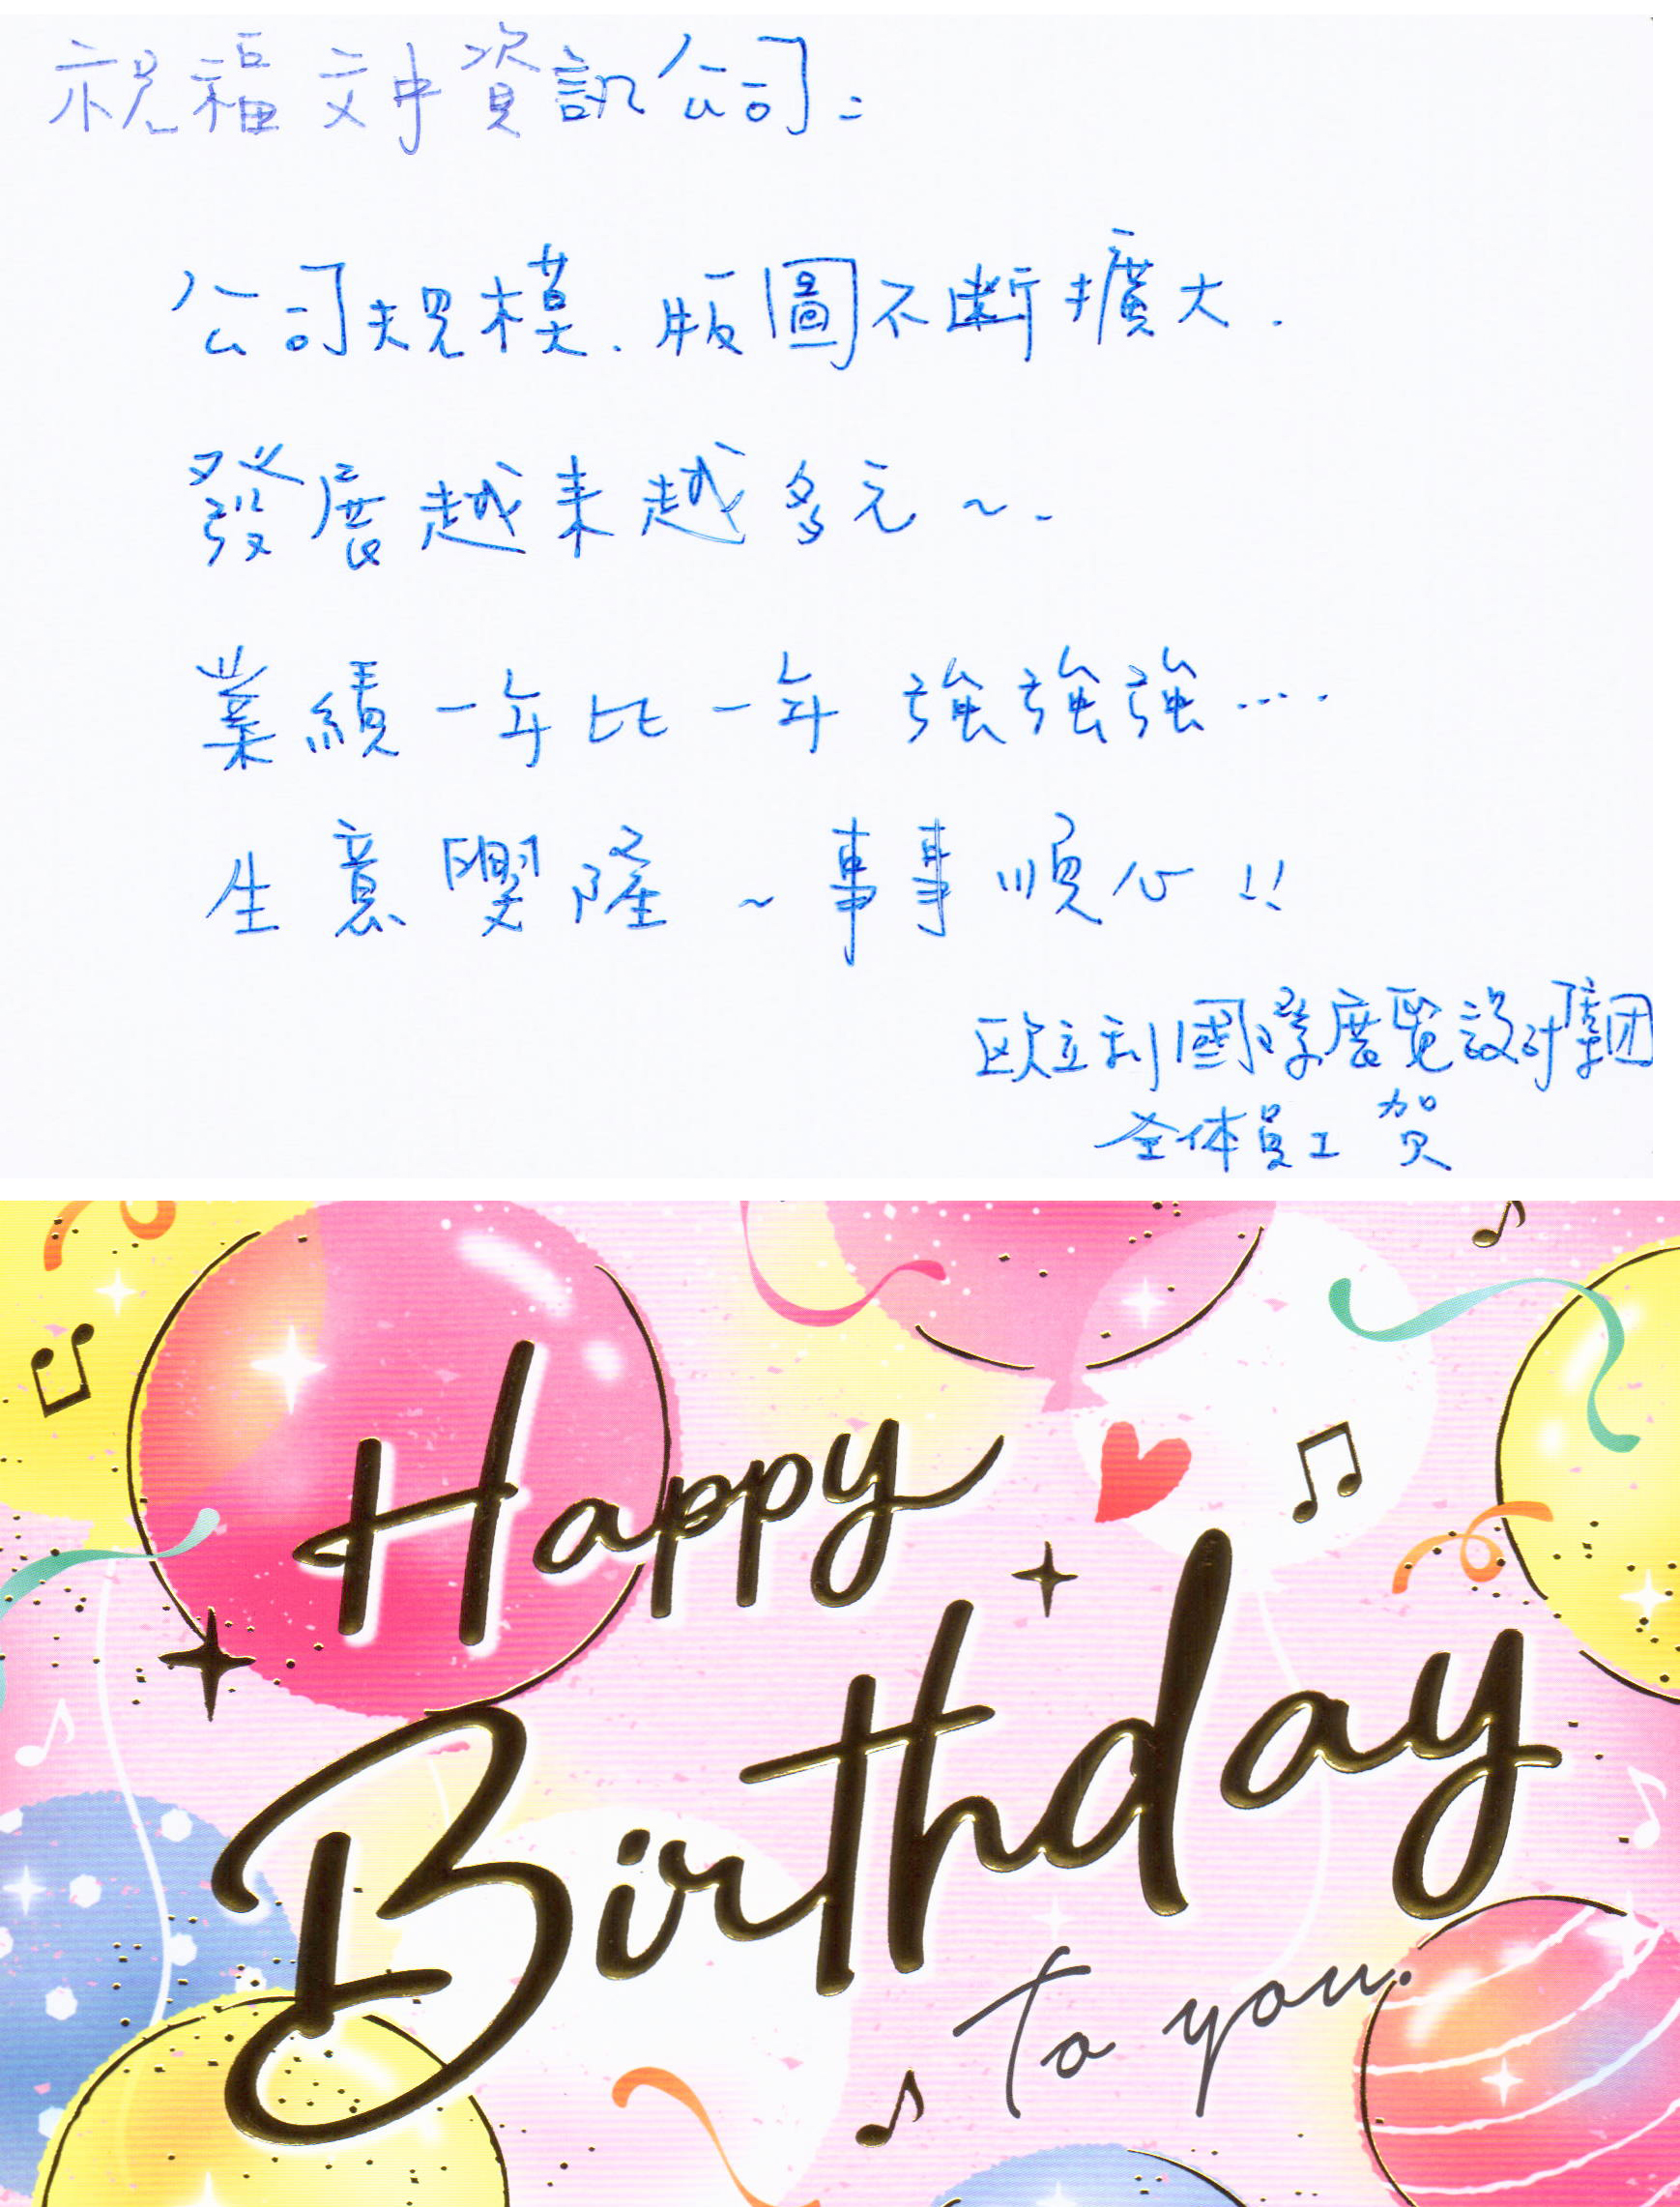 祝福文中資訊公司：
公司規模、版圖不斷擴大.
發展越來越多元～.
業績一年比一年 強強強....
生意興隆～事事順心!!
歐立利國際展覽設計集团
全体員工 賀
Happy
Birthday
to you.